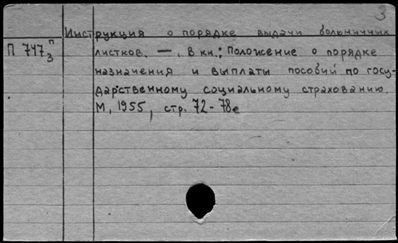 3
Инструкция о порядке выдачи больничных
П 747 п/3 листков. —, В кн.: Положение о порядке
назначения и выплаты пособий по госу-
дарственному социальному страхованию.
М, 1955, стр. 72-78е